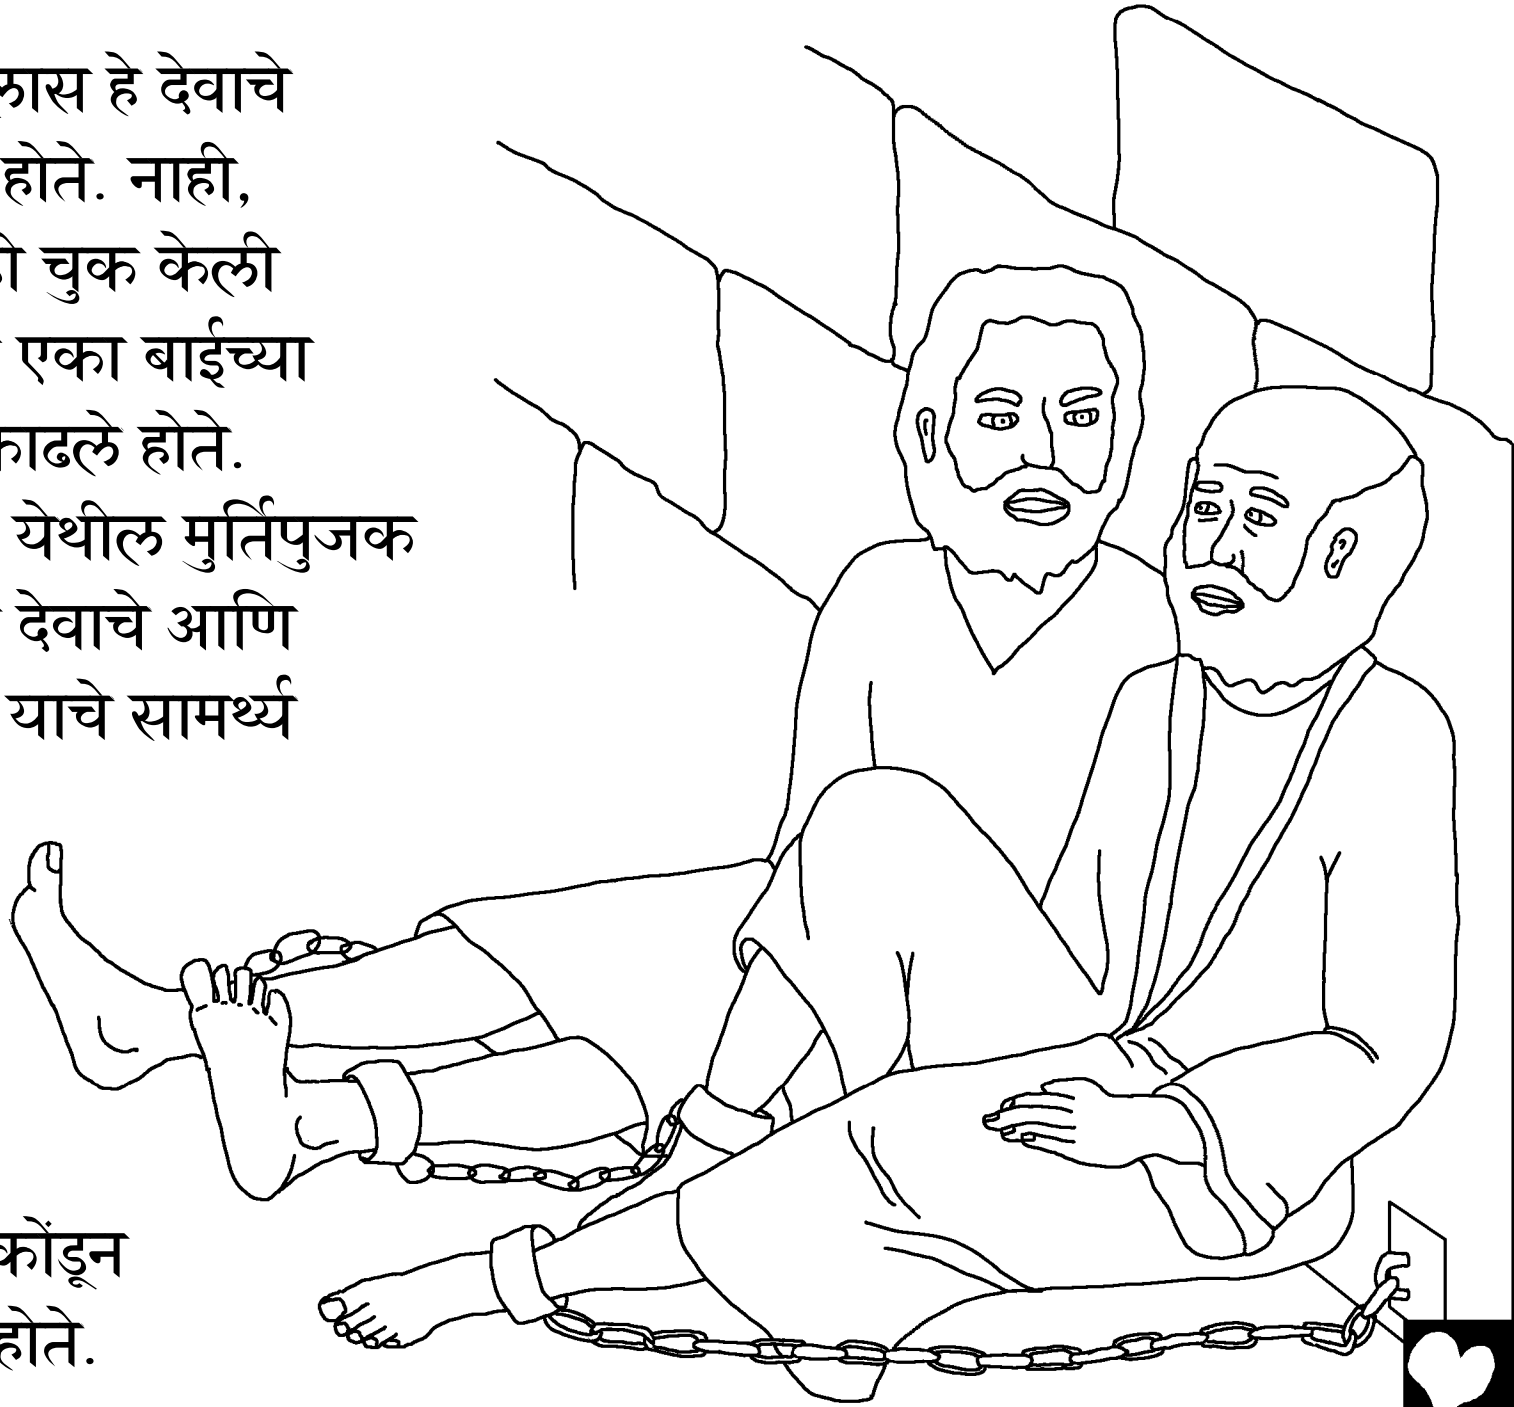 हे देवाचे
होते. नाही,
चुक केली
एका बाईच्या
काढले होते.
येथील मुर्तिपुजक
देवाचे आणि
याचे सामर्थ्य
कोंडून
होते.